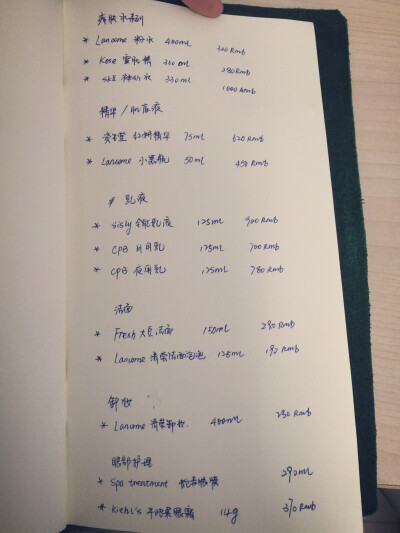 爽肤水系列
* Lancome 粉水 400ml 300 Rmb
* Kose 雪肌精 360ml 280 Rmb
* SKII 神仙水 330ml 1000 Rmb
精华/肌底液
* 资生堂 红妍精华 75ml 620 Rmb
* Lancome 小黑瓶 50ml 450 Rmb
# 乳液
* sisly 全能乳液 125ml 900 Rmb
* CPB 日用乳 125ml 700 Rmb
* CPB 夜用乳 125ml 780 Rmb
洁面
* Fresh 大豆洁面 150ml 290 Rmb
* Lancome 清滢洁面泡泡 125ml 192 Rmb
卸妆
* Lancome 清滢卸妆. 400ml 230 Rmb
眼部护理
* Spa treatment 蛇毒眼膜 292ml
* Kiehl's 牛油果眼霜 14g 370 Rmb